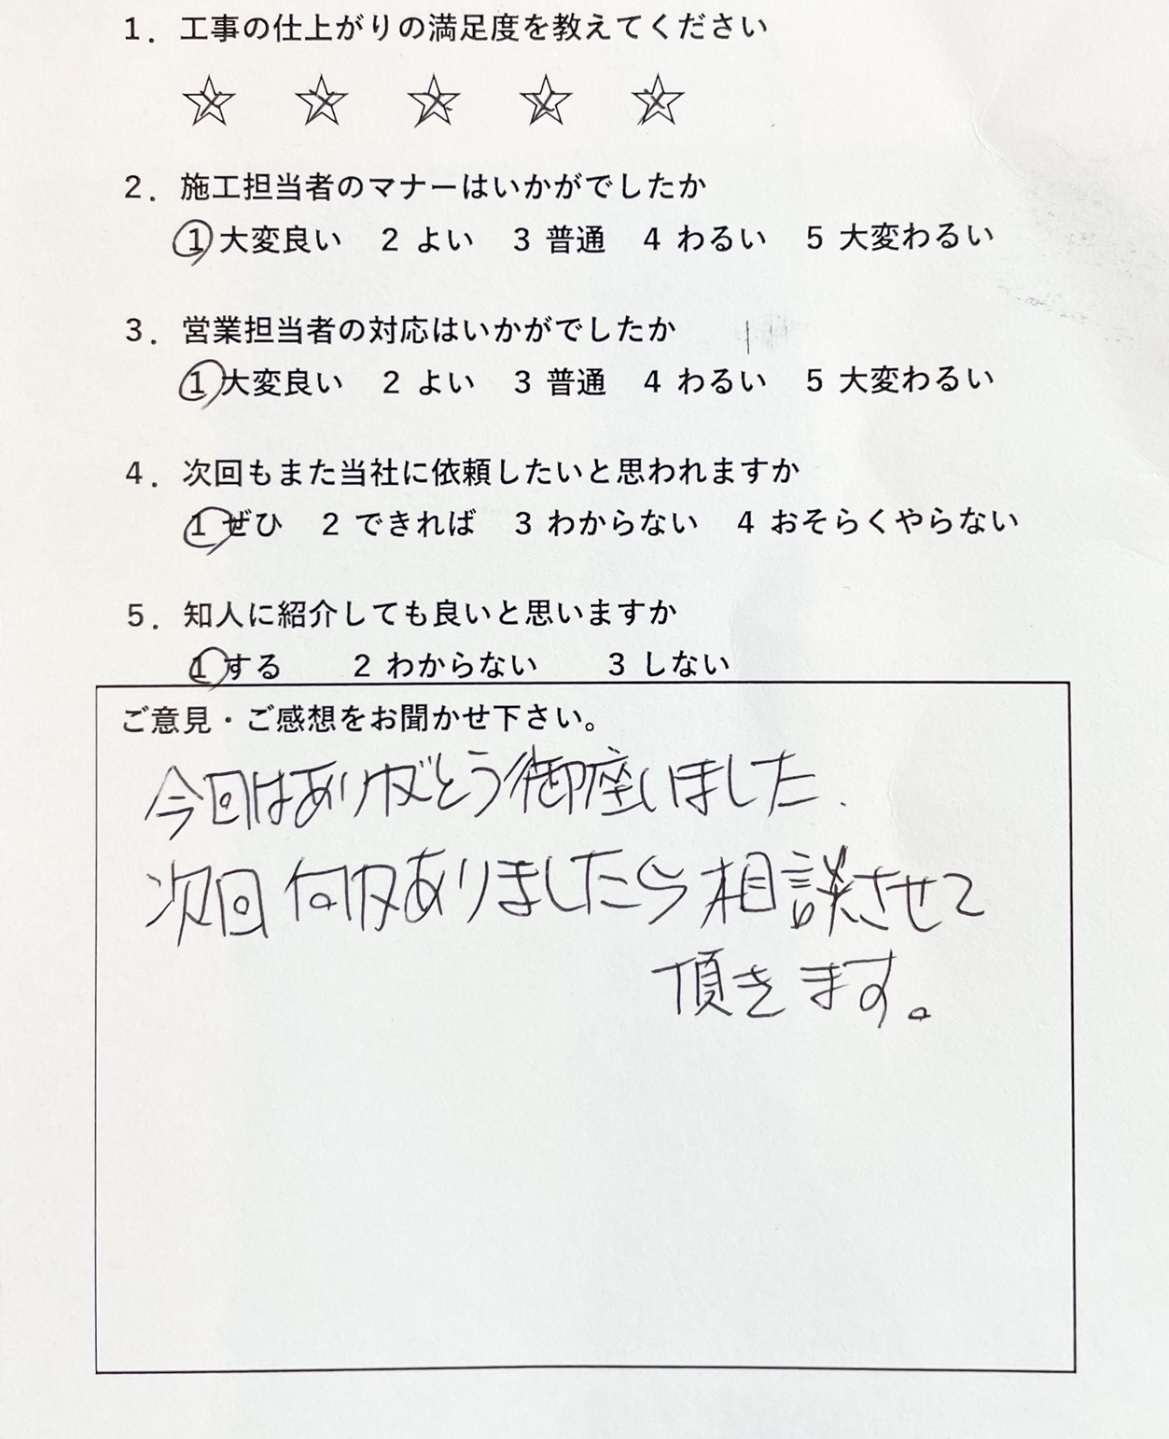 1. 工事の仕上がりの満足度を教えてください
☆ ☆ ☆ ☆ ☆
2. 施工担当者のマナーはいかがでしたか
1 大変良い 2 よい 3 普通 4 わるい 5 大変わるい
3. 営業担当者の対応はいかがでしたか
1 大変良い 2 よい 3 普通 4 わるい 5 大変わるい
4. 次回もまた当社に依頼したいと思われますか
1 ぜひ 2 できれば 3 わからない 4 おそらくやらない
5. 知人に紹介しても良いと思いますか
1 する 2 わからない 3 しない
ご意見・ご感想をお聞かせ下さい。
今回はありがとう御座いました.
次回何かありましたら相談させて
頂きます。